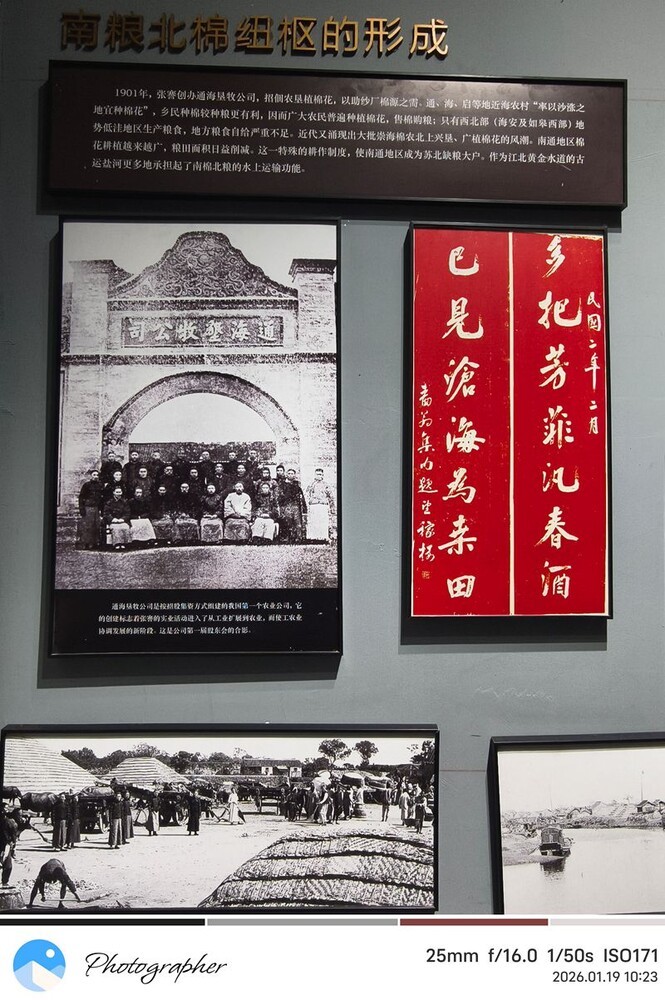 南粮北棉纽枢的形成
1901年，张謇创办通海垦牧公司，招佃农垦植棉花，以助纱厂棉源之需。通、海、启等地近海农村“率以沙涨之
地宜种棉花”，乡民种棉较种粮更有利，因而广大农民普遍种植棉花，售棉购粮；只有西北部（海安及如皋西部）地
势低洼地区生产粮食，地方粮食自给严重不足。近代又涌现出大批崇海棉农北上兴垦、广植棉花的风潮。南通地区棉
花耕植越来越广，粮田面积日益削减。这一特殊的耕作制度，使南通地区成为苏北缺粮大户。作为江北黄金水道的古
运盐河更多地承担起了南棉北粮的水上运输功能。
通海墾牧公司
通海垦牧公司是按招股集资方式组建的我国第一个农业公司，它
的创建标志着张謇的实业活动进入了从工业扩展到农业，而使工农业
协调发展的新阶段。这是公司第一届股东会的合影。
民國二年二月
多把芳菲汎春酒
已見滄海為桑田
嗇翁集句題望稼樓
Photographer
25mm f/16.0 1/50s ISO171
2026.01.19 10:23